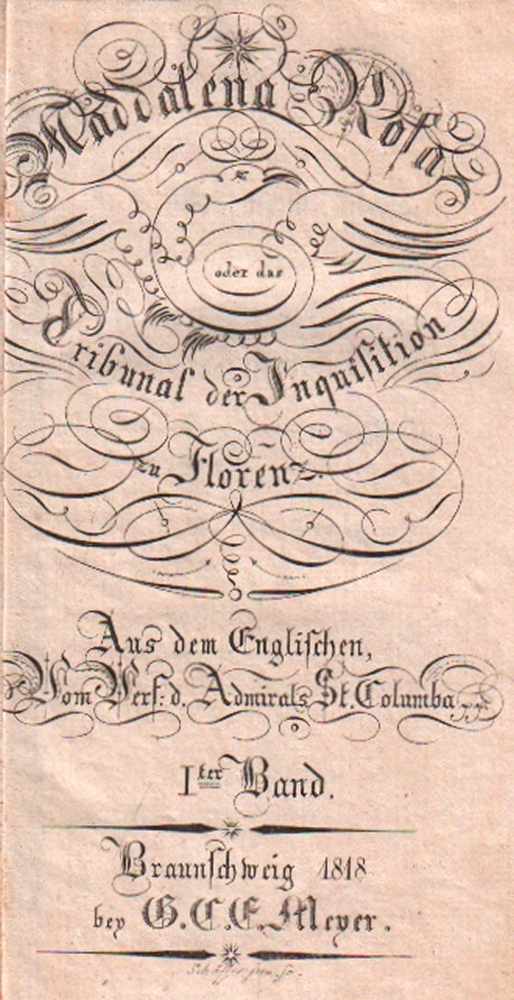 Maddalena Rosa
oder das
Tribunal der Inquisition
zu Florenz.
Aus dem Englischen,
Vom Verf: d. Admirals St. Columba pp:
I ter Band.
Braunschweig 1818
bey G. C. E. Meyer.